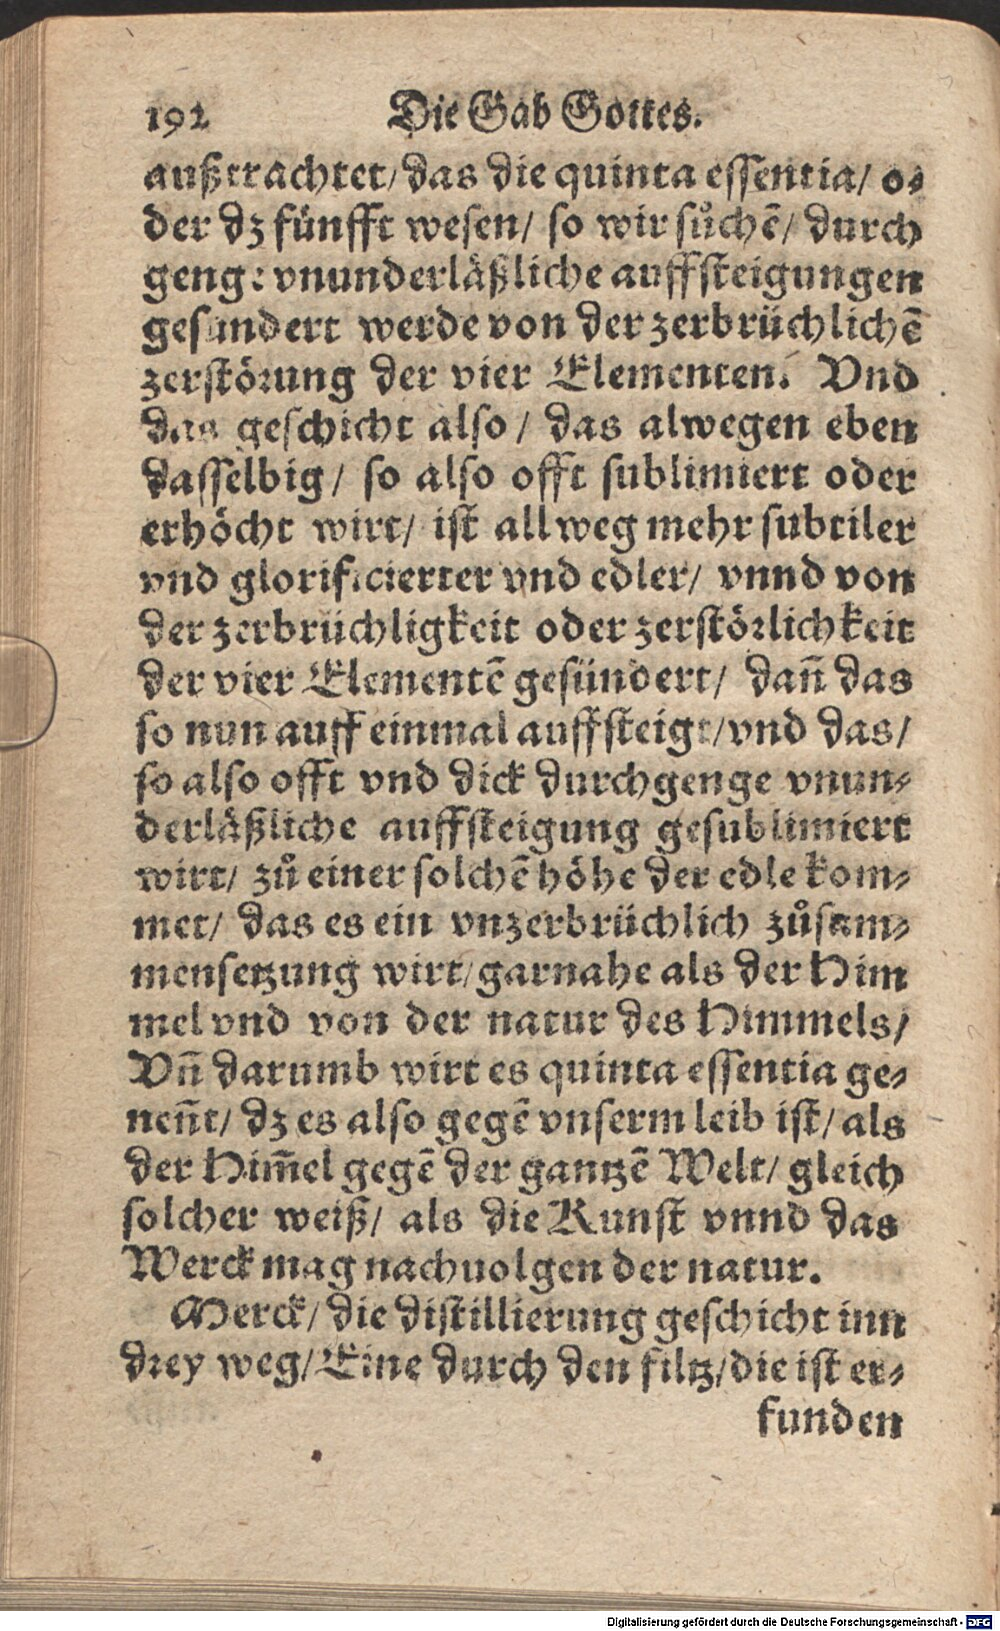 192 Die Gab Gottes.
außtrachtet/ das die quinta essentia/ o⸗
der dz fünfft wesen/ so wir sůchē/ durch
geng: vnunderläßliche auffsteigungen
gesundert werde von der zerbrüchlichē
zerstörung der vier Elementen. Vnd
das geschicht also/ das alwegen eben
dasselbig/ so also offt sublimiert oder
erhöcht wirt/ ist allweg mehr subtiler
vnd glorificierter vnd edler/ vnnd von
der zerbrüchligkeit oder zerstörlichkeit
der vier Elementē gesündert/ dañ das
so nun auff einmal auffsteigt/ vnd das/
so also offt vnd dick durchgenge vnun⸗
derläßliche auffsteigung gesublimiert
wirt/ zů einer solchē höhe der edle kom⸗
met/ das es ein vnzerbrüchlich zůsam⸗
mensetzung wirt/ garnahe als der Him
mel vnd von der natur des Himmels/
Vñ darumb wirt es quinta essentia ge⸗
neñt/ dz es also gegē vnserm leib ist/ als
der Him̃el gegē der gantzē Welt/ gleich
solcher weiß/ als die Kunst vnnd das
Werck mag nachuolgen der natur.
Merck/ die distillierung geschicht inn
drey weg/ Eine durch den filtz/ die ist er⸗
funden
Digitalisierung gefördert durch die Deutsche Forschungsgemeinschaft - DFG